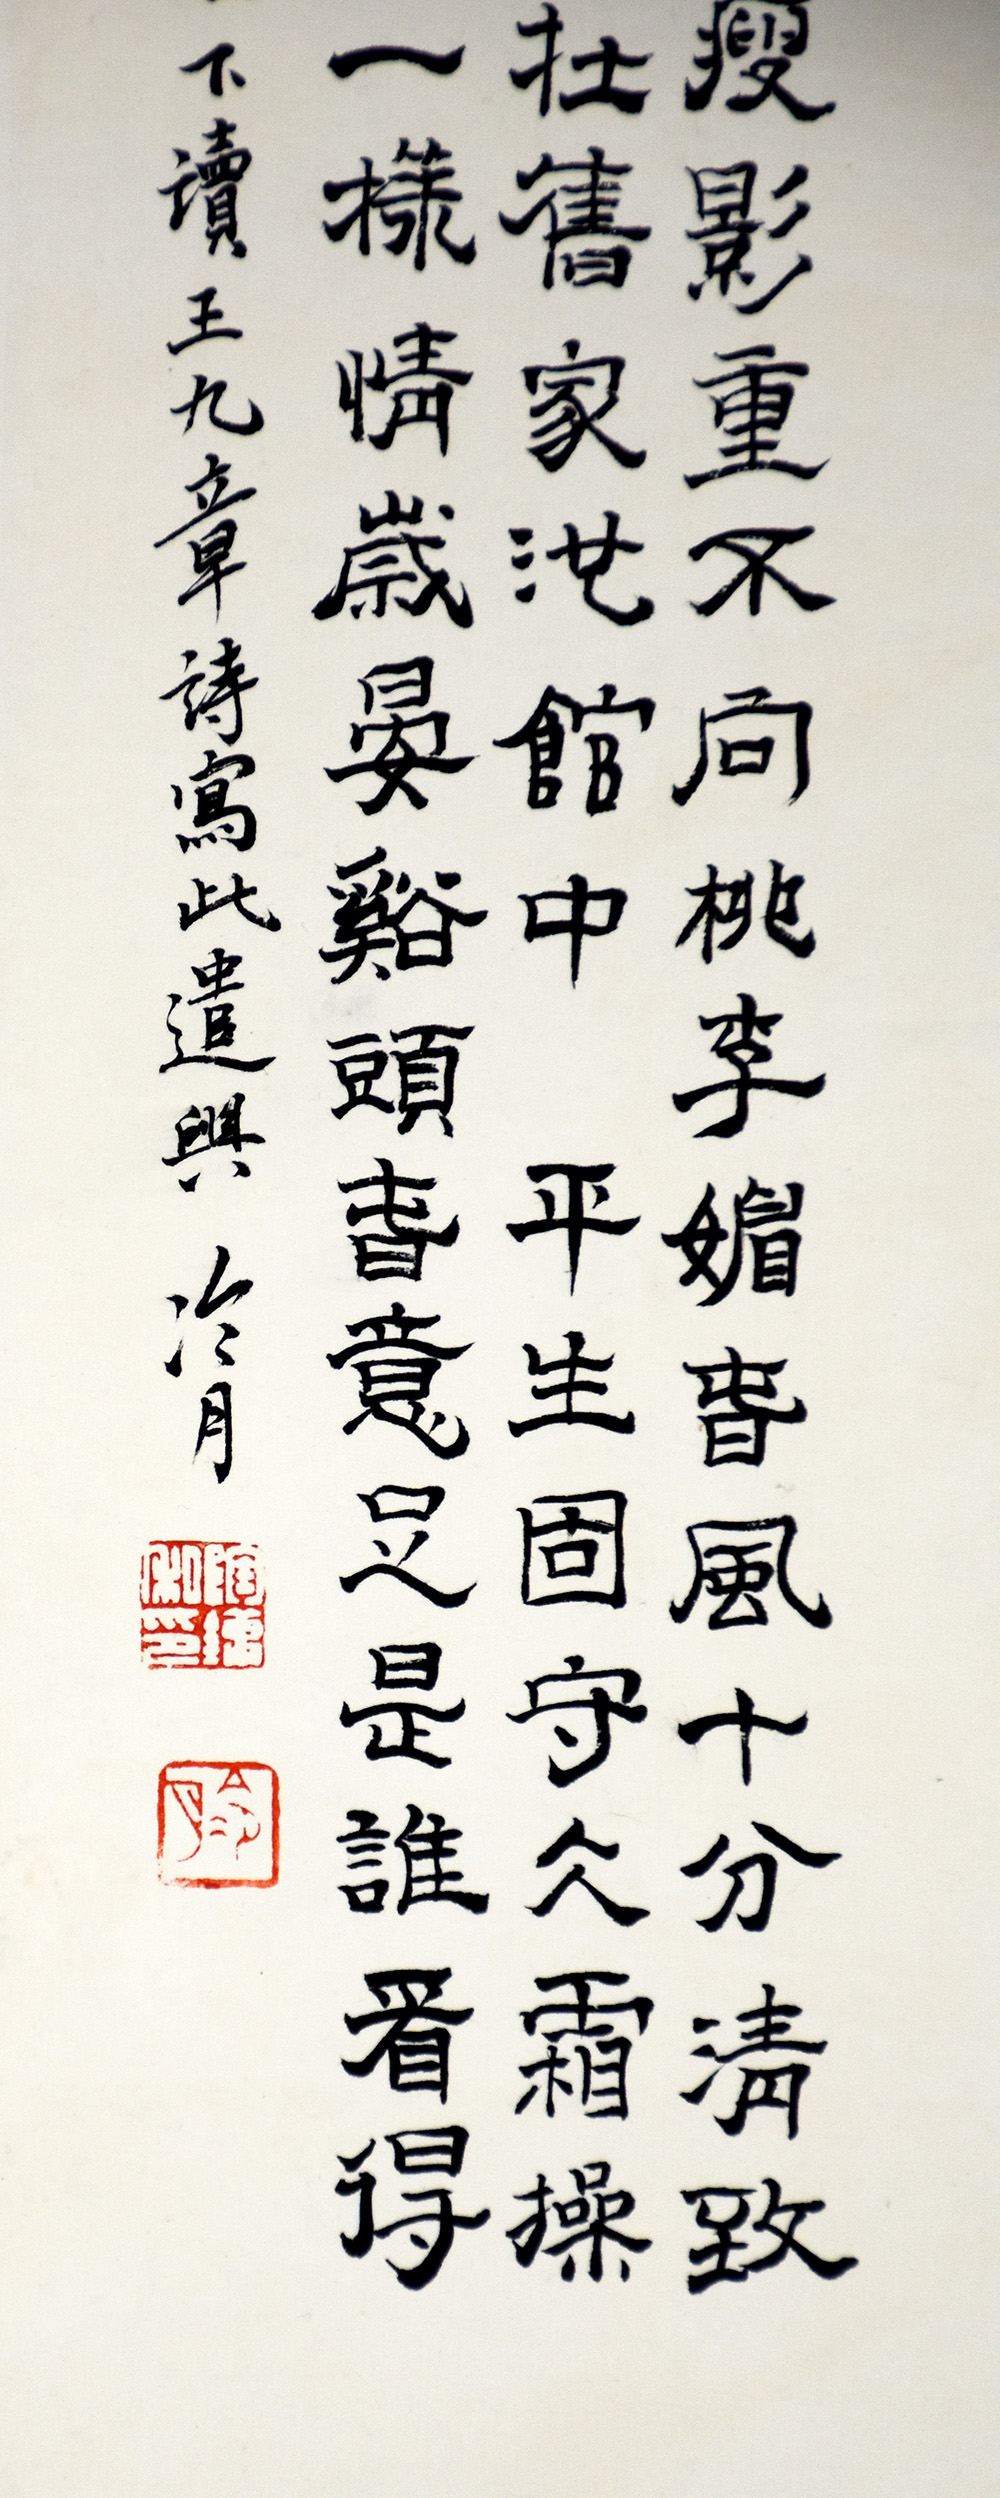 瘦影重不向桃李媚春風十分清致
在舊家池館中 平生固守久霜操
一樣情歲晏谿頭春意足是誰看得
下讀王九章詩寫此遣興 冷月